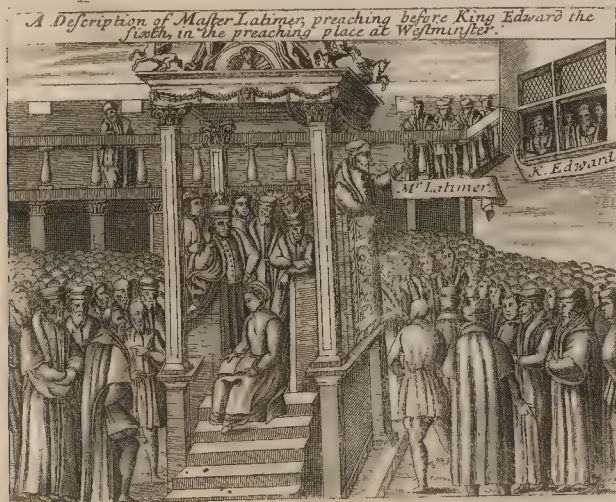 A Deſcription of Maſter Latimer, preaching before King Edward the
ſixth, in the preaching place at Weſtminſter.
K. Edward
Mr Latimer.